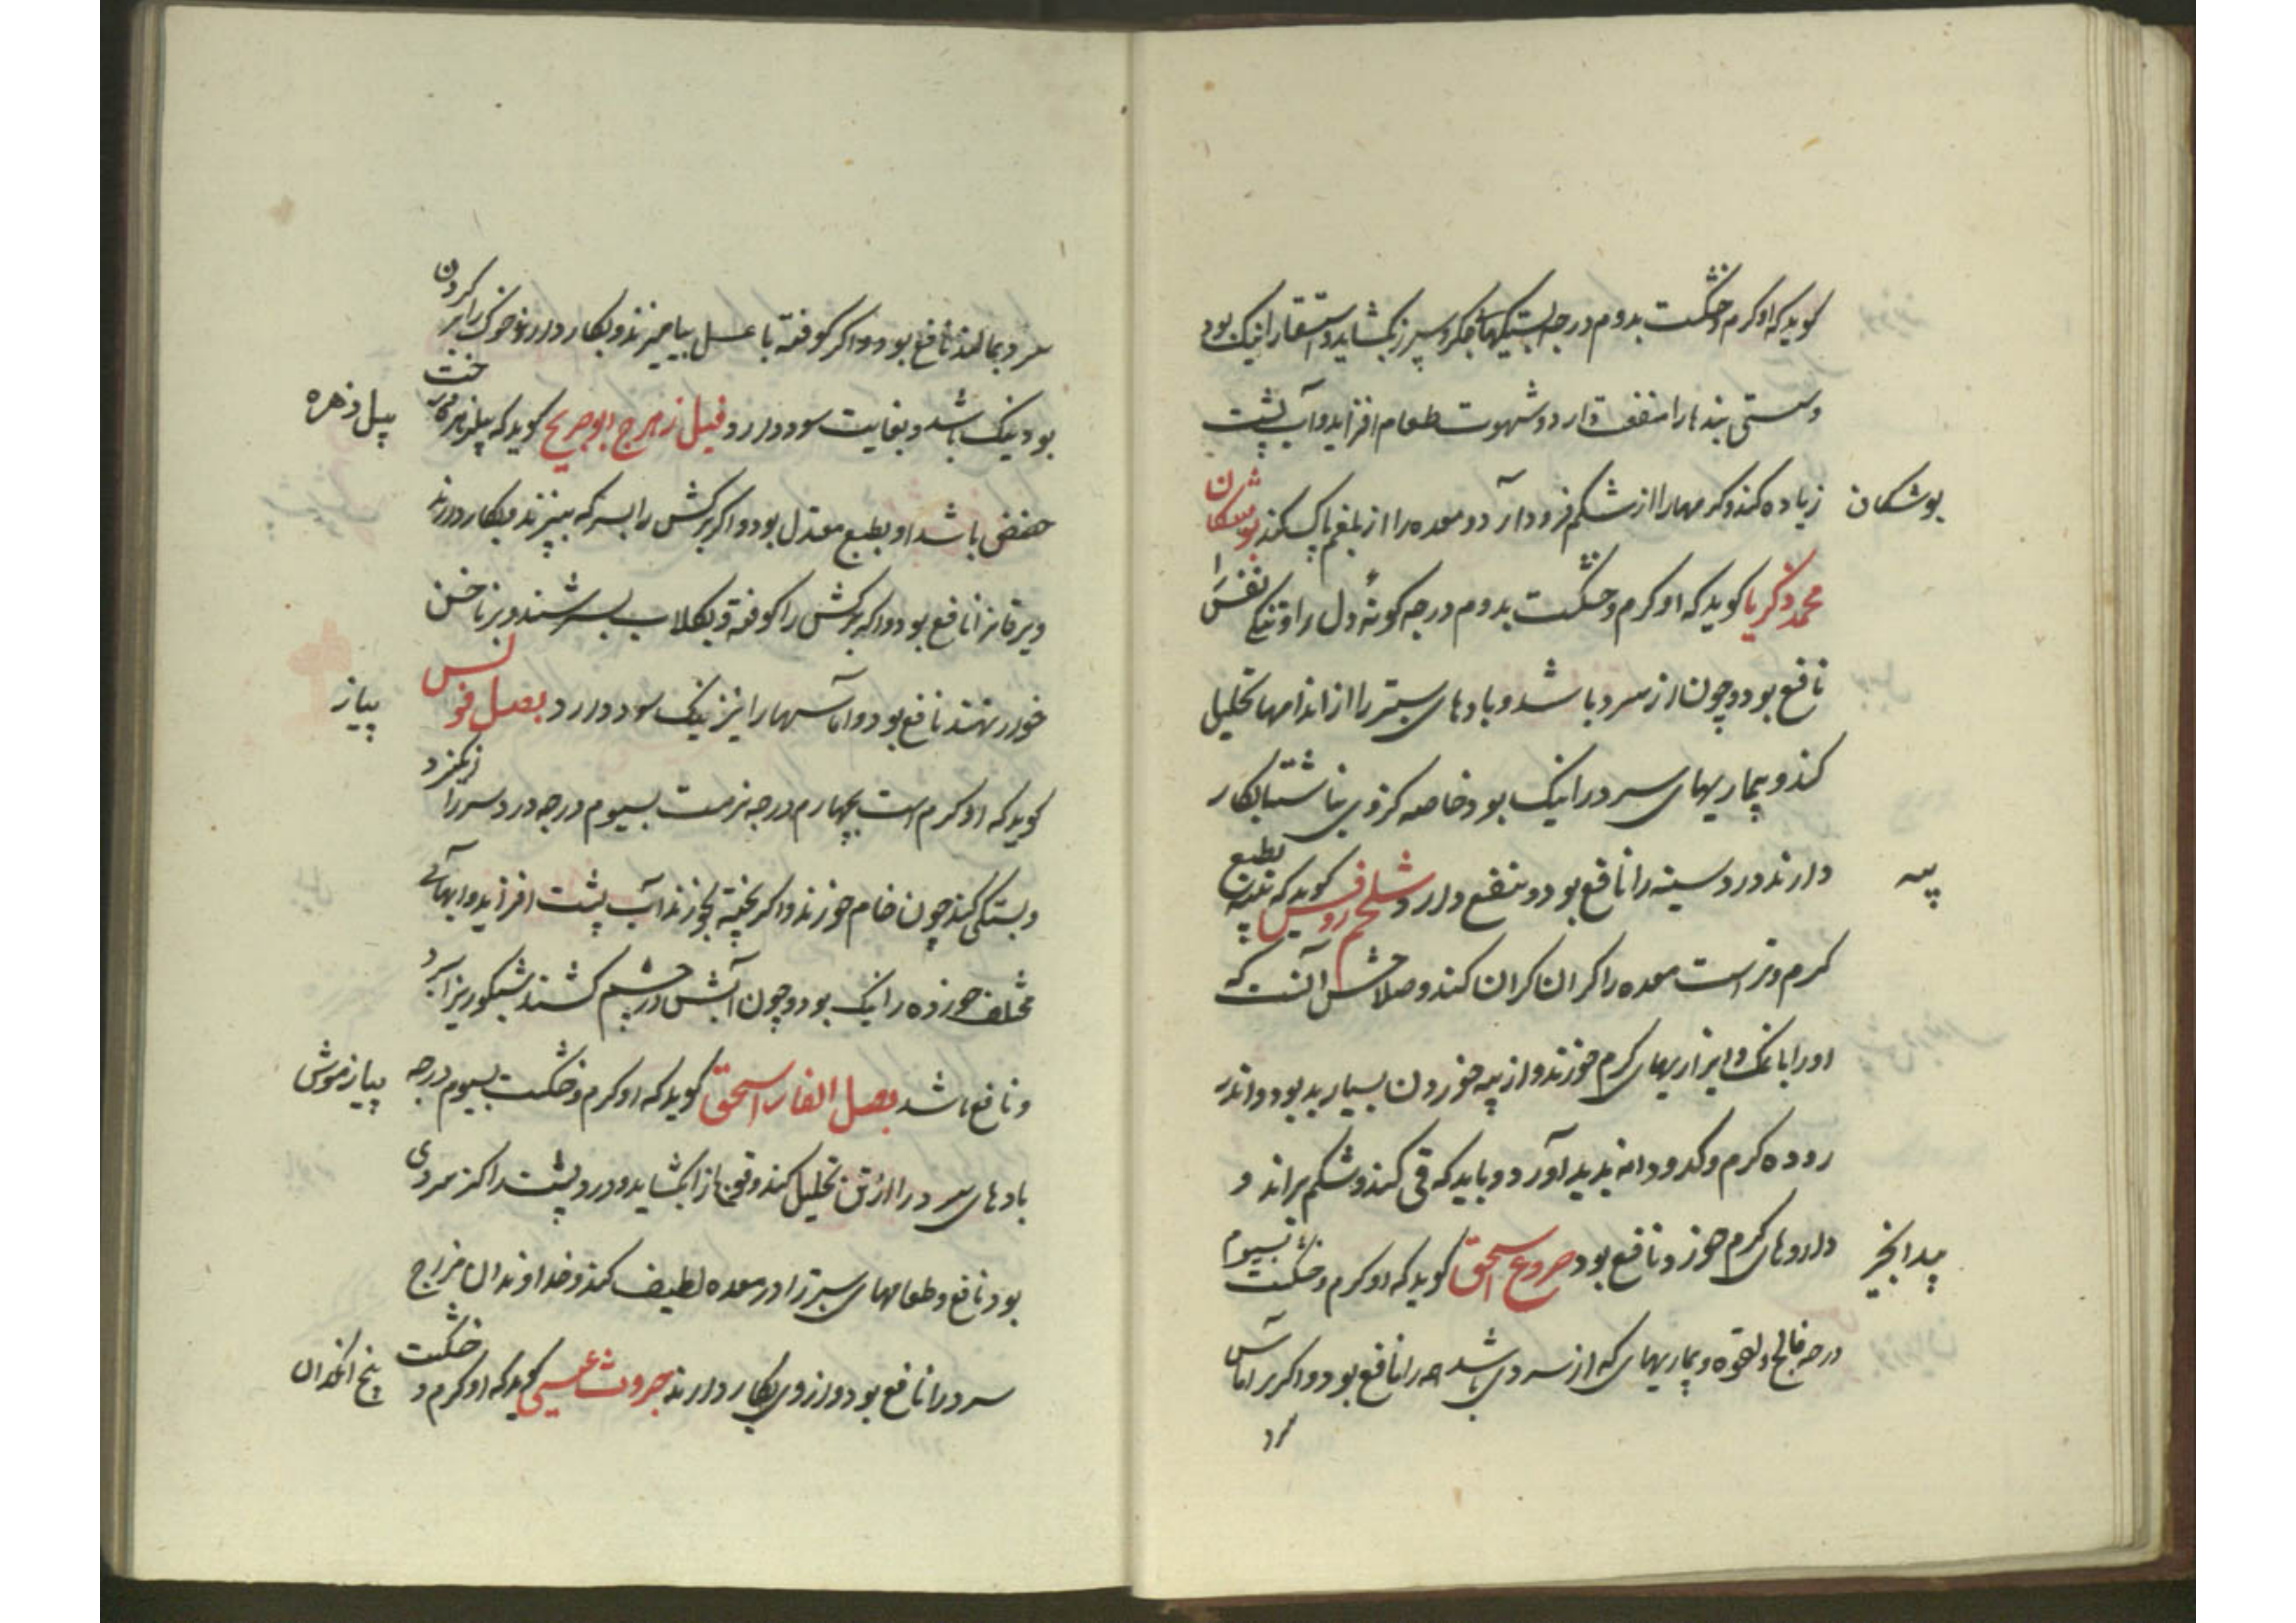 کوید که او کرم و خشکست بدوم درجه بستیکهاء جکر و سپرز بکشاید و استسقا را نیک بود
و سستی بندها را منفعت دارد و شهوت طعام افزاید و آب پشت
بوشکان
زیاده کند و کرمها را از شکم فرود آرد و معده را از بلغم پاک کند بوشکان
محمد زکریا کوید که او کرم و خشکست بدوم درجه کونهٔ دل را و تنکی نفس را
نافع بود و چون از سرد باشد و بادهای ستبر را از اندامها تحلیل
کند و بیماریهای سرد را نیک بود خاصه کزوی ناشتا بکار
پیه
دارند درد سینه را نافع بود و منفع دارد شحم روفس کوید که پیه بطبع
کرم و تر است معده را کران کران کند و صلاحش آنست که
او را با نمک و ابزاریهای کرم خورند و از پیه خوردن بسیار بد بود و اندر
روده کرم و کدودانه پدید آورد و باید که قی کند و شکم براند و
بیدانجیر
داروهای کرم خورد نافع بود خروع اسحق کوید که او کرم و خشکست بسیوم
درجه فالج و لقوه و بیماریهای که از سردی باشد همه را نافع بود و اکر بر آماس
سرد
سرد بمالند نافع بود و اکر کوفته با عسل بیامیزند و بکار دارند خوک را بر کردن
پیل زهره
بود نیک باشد و بغایت سود دارد فیل زهرج ابو جریج کوید که پیلزهره درخت
حضض باشد او بطبع معتدل بود و اکر برکش را بسرکه بپزند بکار دارند
و یرقانرا نافع بود و اکر برکش را کوفته و بکلاب بسرشند و بر ناخن
پیاز
خورد نهند نافع بود و آماسها را نیز نیک سود دارد بصل فولس
کوید که او کرم است بچهارم درجه نرمست بسیوم درجه درد سر را انکیزد
و بستکی کند چون خام خورند و اکر پخته بخورند آب پشت افزاید و آبهای
مختلف خورده را نیک بود و چون آبش در چشم کشند شبکوریرا ببرد
پیاز موش
و نافع باشد بصل الفار اسحق کوید که او کرم و خشکست بسیوم درجه
بادهای سرد را از تن تحلیل کند و قولنج را بکشاید و درد پشت را کز سردی
بود نافع و طعامهای ستبر را در معده لطیف کند و خداوندان مزاج
بیخ انجدان
سرد را نافع بود و از وی بکار دارند محروث عیسی کوید که او کرم و خشکست